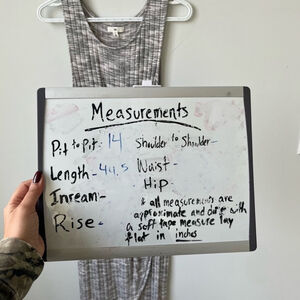 Measurements
Pit to Pit- 14 Shoulder to Shoulder-
Length- 44.5 Waist-
Inream- Hip
Rise- * all measurements are
approximate and done with
a soft tape measure lay
flat in inches